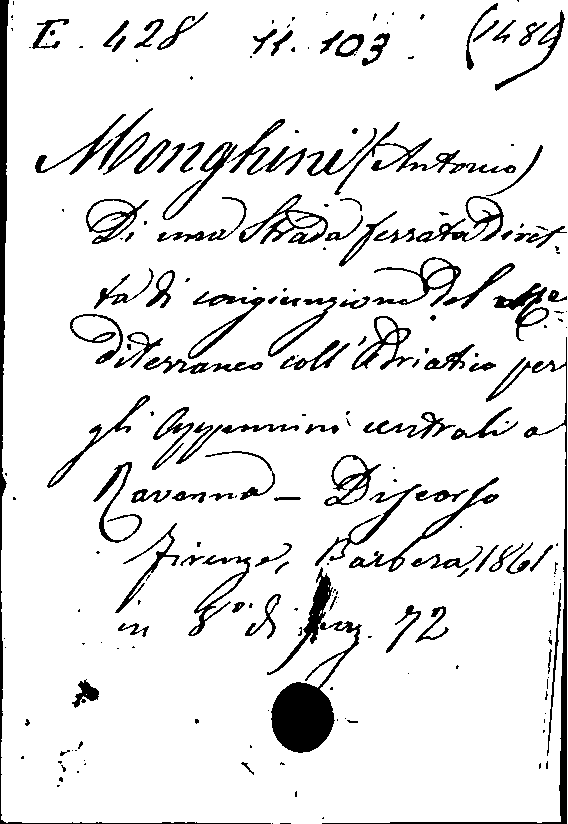 E. 428 11. 103. (1489
Monghini (Antonio)
Di una Strada ferrata Diret-
ta di congiunzione del Me-
diterraneo coll'Adriatico per
gli Appennini centrali a
Ravenna — Discorso
Firenze, Barbera, 1861
in 8.° di pag. 72